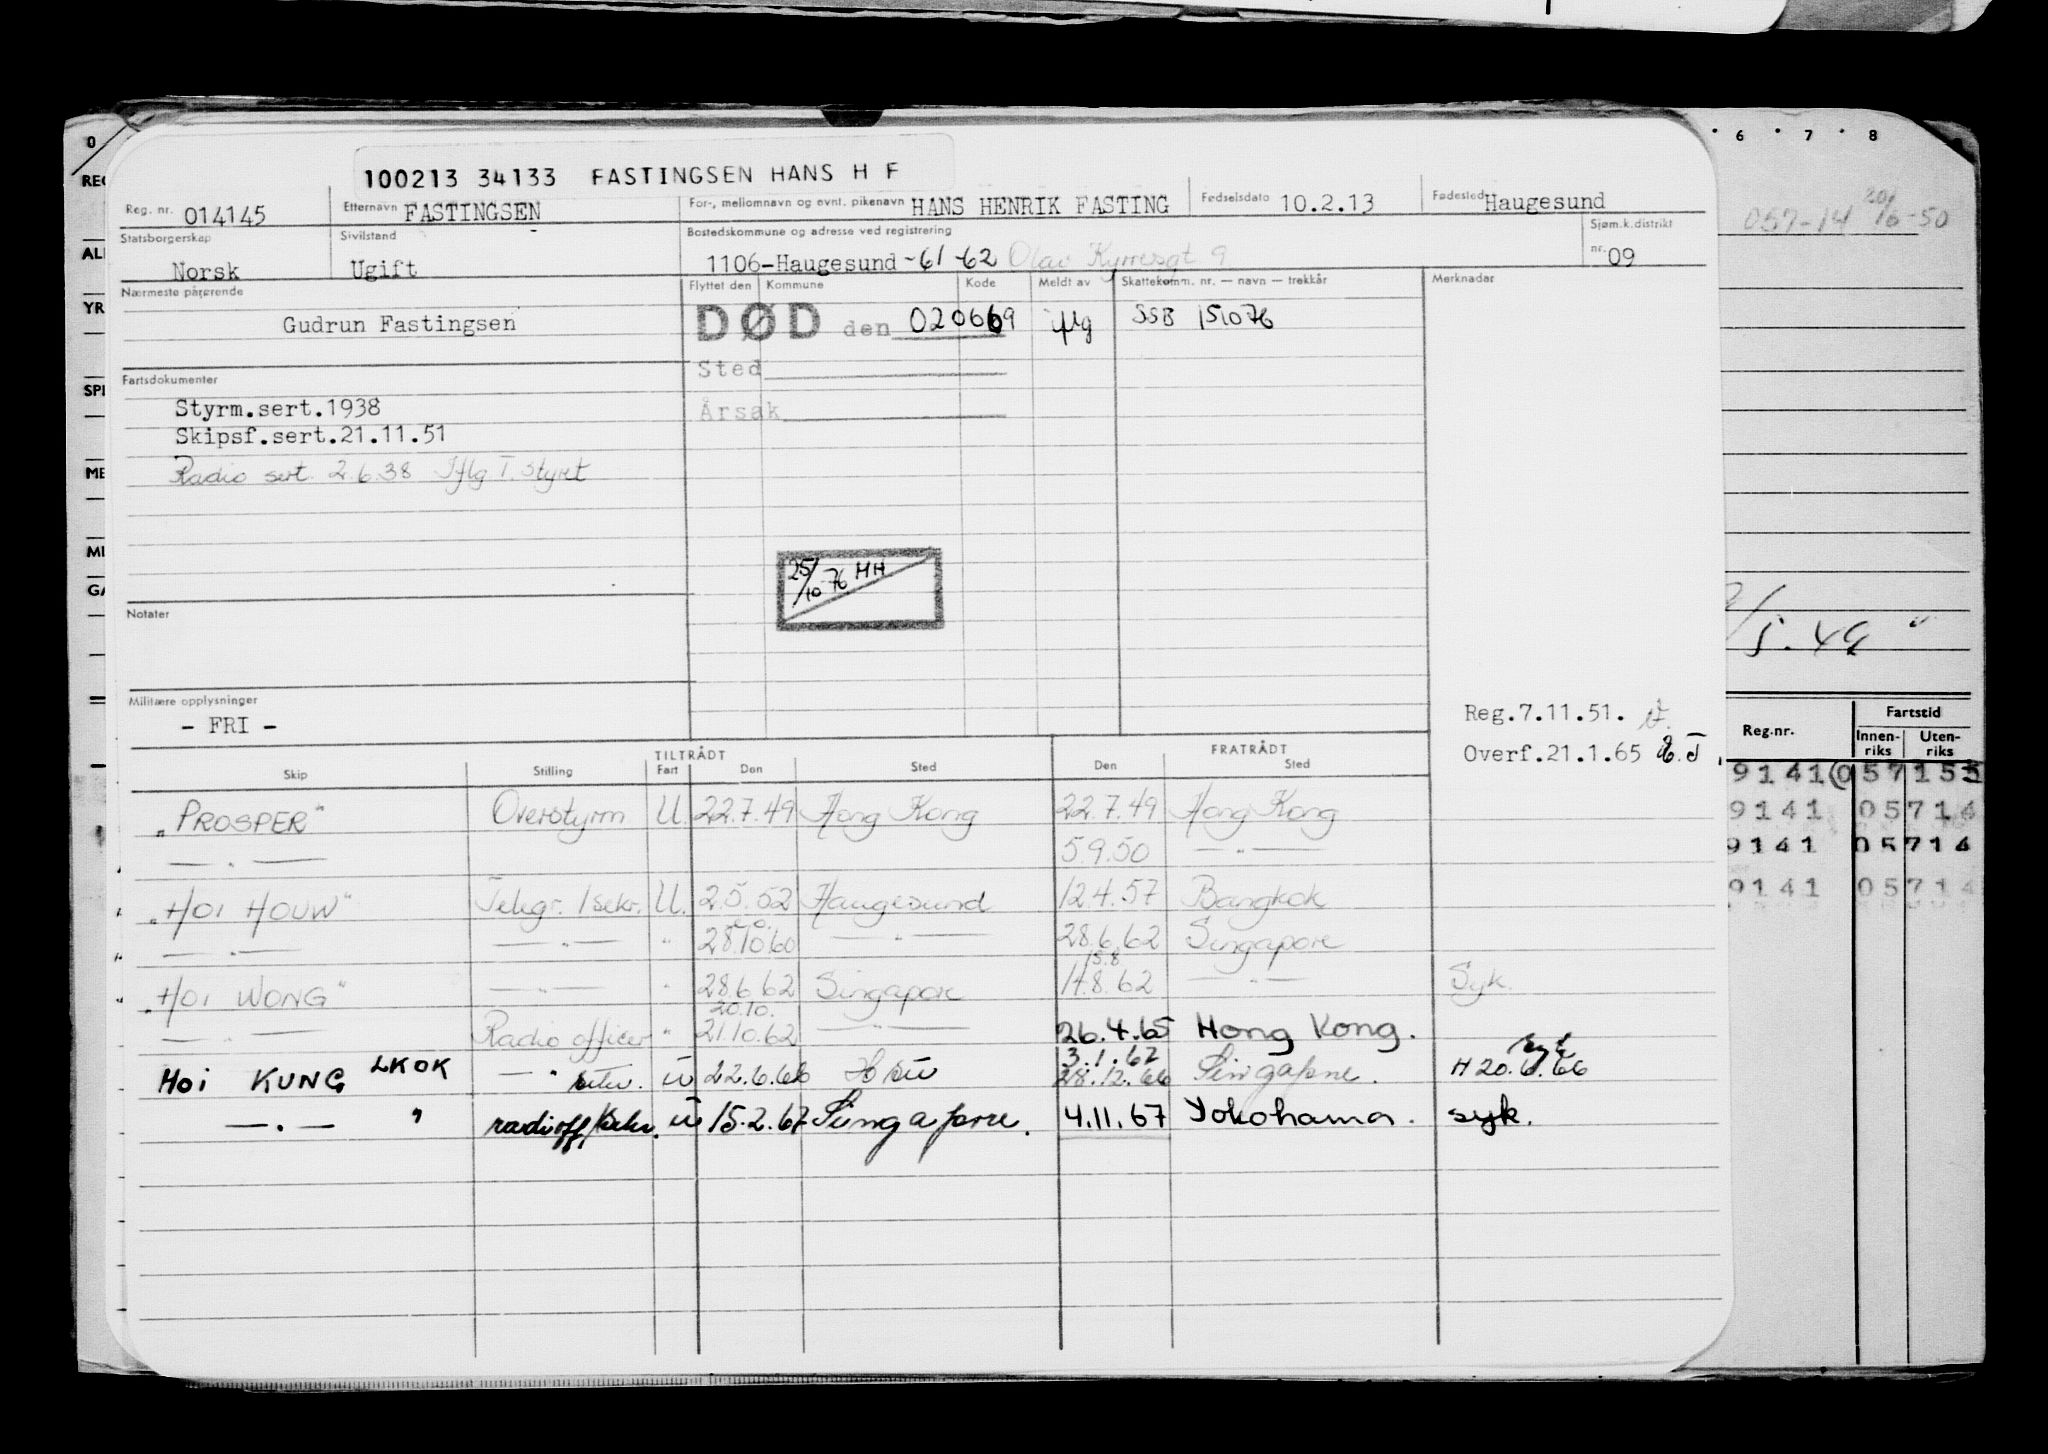 0 6 7 8
100213 34133 FASTINGSEN HANS H F
REG
Reg. nr. 014145 Etternavn FASTINGSEN For-, mellomnavn og evnt. pikenavn HANS HENRIK FASTING Fødselsdato 10.2.13 Fødested Haugesund
057-14 20/6-50
Statsborgerskap Sivilstand Bostedskommune og adresse ved registrering Sjøm.k.distrikt
Norsk Ugift 1106-Haugesund -61 -62 Olav Kyrresgt 9 nr. 09
Nærmeste pårørende Flyttet den Kommune Kode Meldt av Skattekomm. nr. — navn — trekkår Merknader
Gudrun Fastingsen DØD den 020669 iflg SSB 151076
Sted
Fartsdokumenter
Årsak
Styrm.sert.1938
Skipsf.sert.21.11.51
Radio sert. 2.6.38 Iflg T. styret
25/10-76 HH
Notater
Militære opplysninger
- FRI -
Reg.7.11.51.
Overf.21.1.65
Reg.nr. Fartstid
Innenriks Utenriks
TILTRÅDT FRATRÅDT
Skip Stilling Fart Den Sted Den Sted
"PROSPER" Overstyrm U. 22.7.49 Hong Kong 22.7.49 Hong Kong
— " — 5.9.50 — " —
"HOI HOUW" Telegr. /sekr. U. 2.5.52 Haugesund 12.4.57 Bangkok
— " — — " — " 28.10.60 — " — 28.6.62 Singapore
15.8
"HOI WONG" — " — " 28.6.62 Singapore 17.8.62 — " — Syk.
20.10.
— " — Radio officer " 21.10.62 — " — 26.4.65 Hong Kong.
3.1.67
HOI KUNG LKOK — " — U 22.6.66 28.12.66 Singapore. H 20.6.66
— " — " radiooff/sekr. U 15.2.67 Singapore. 4.11.67 Yokohama. syk.
9141 05714
9141 05714
9141 05714